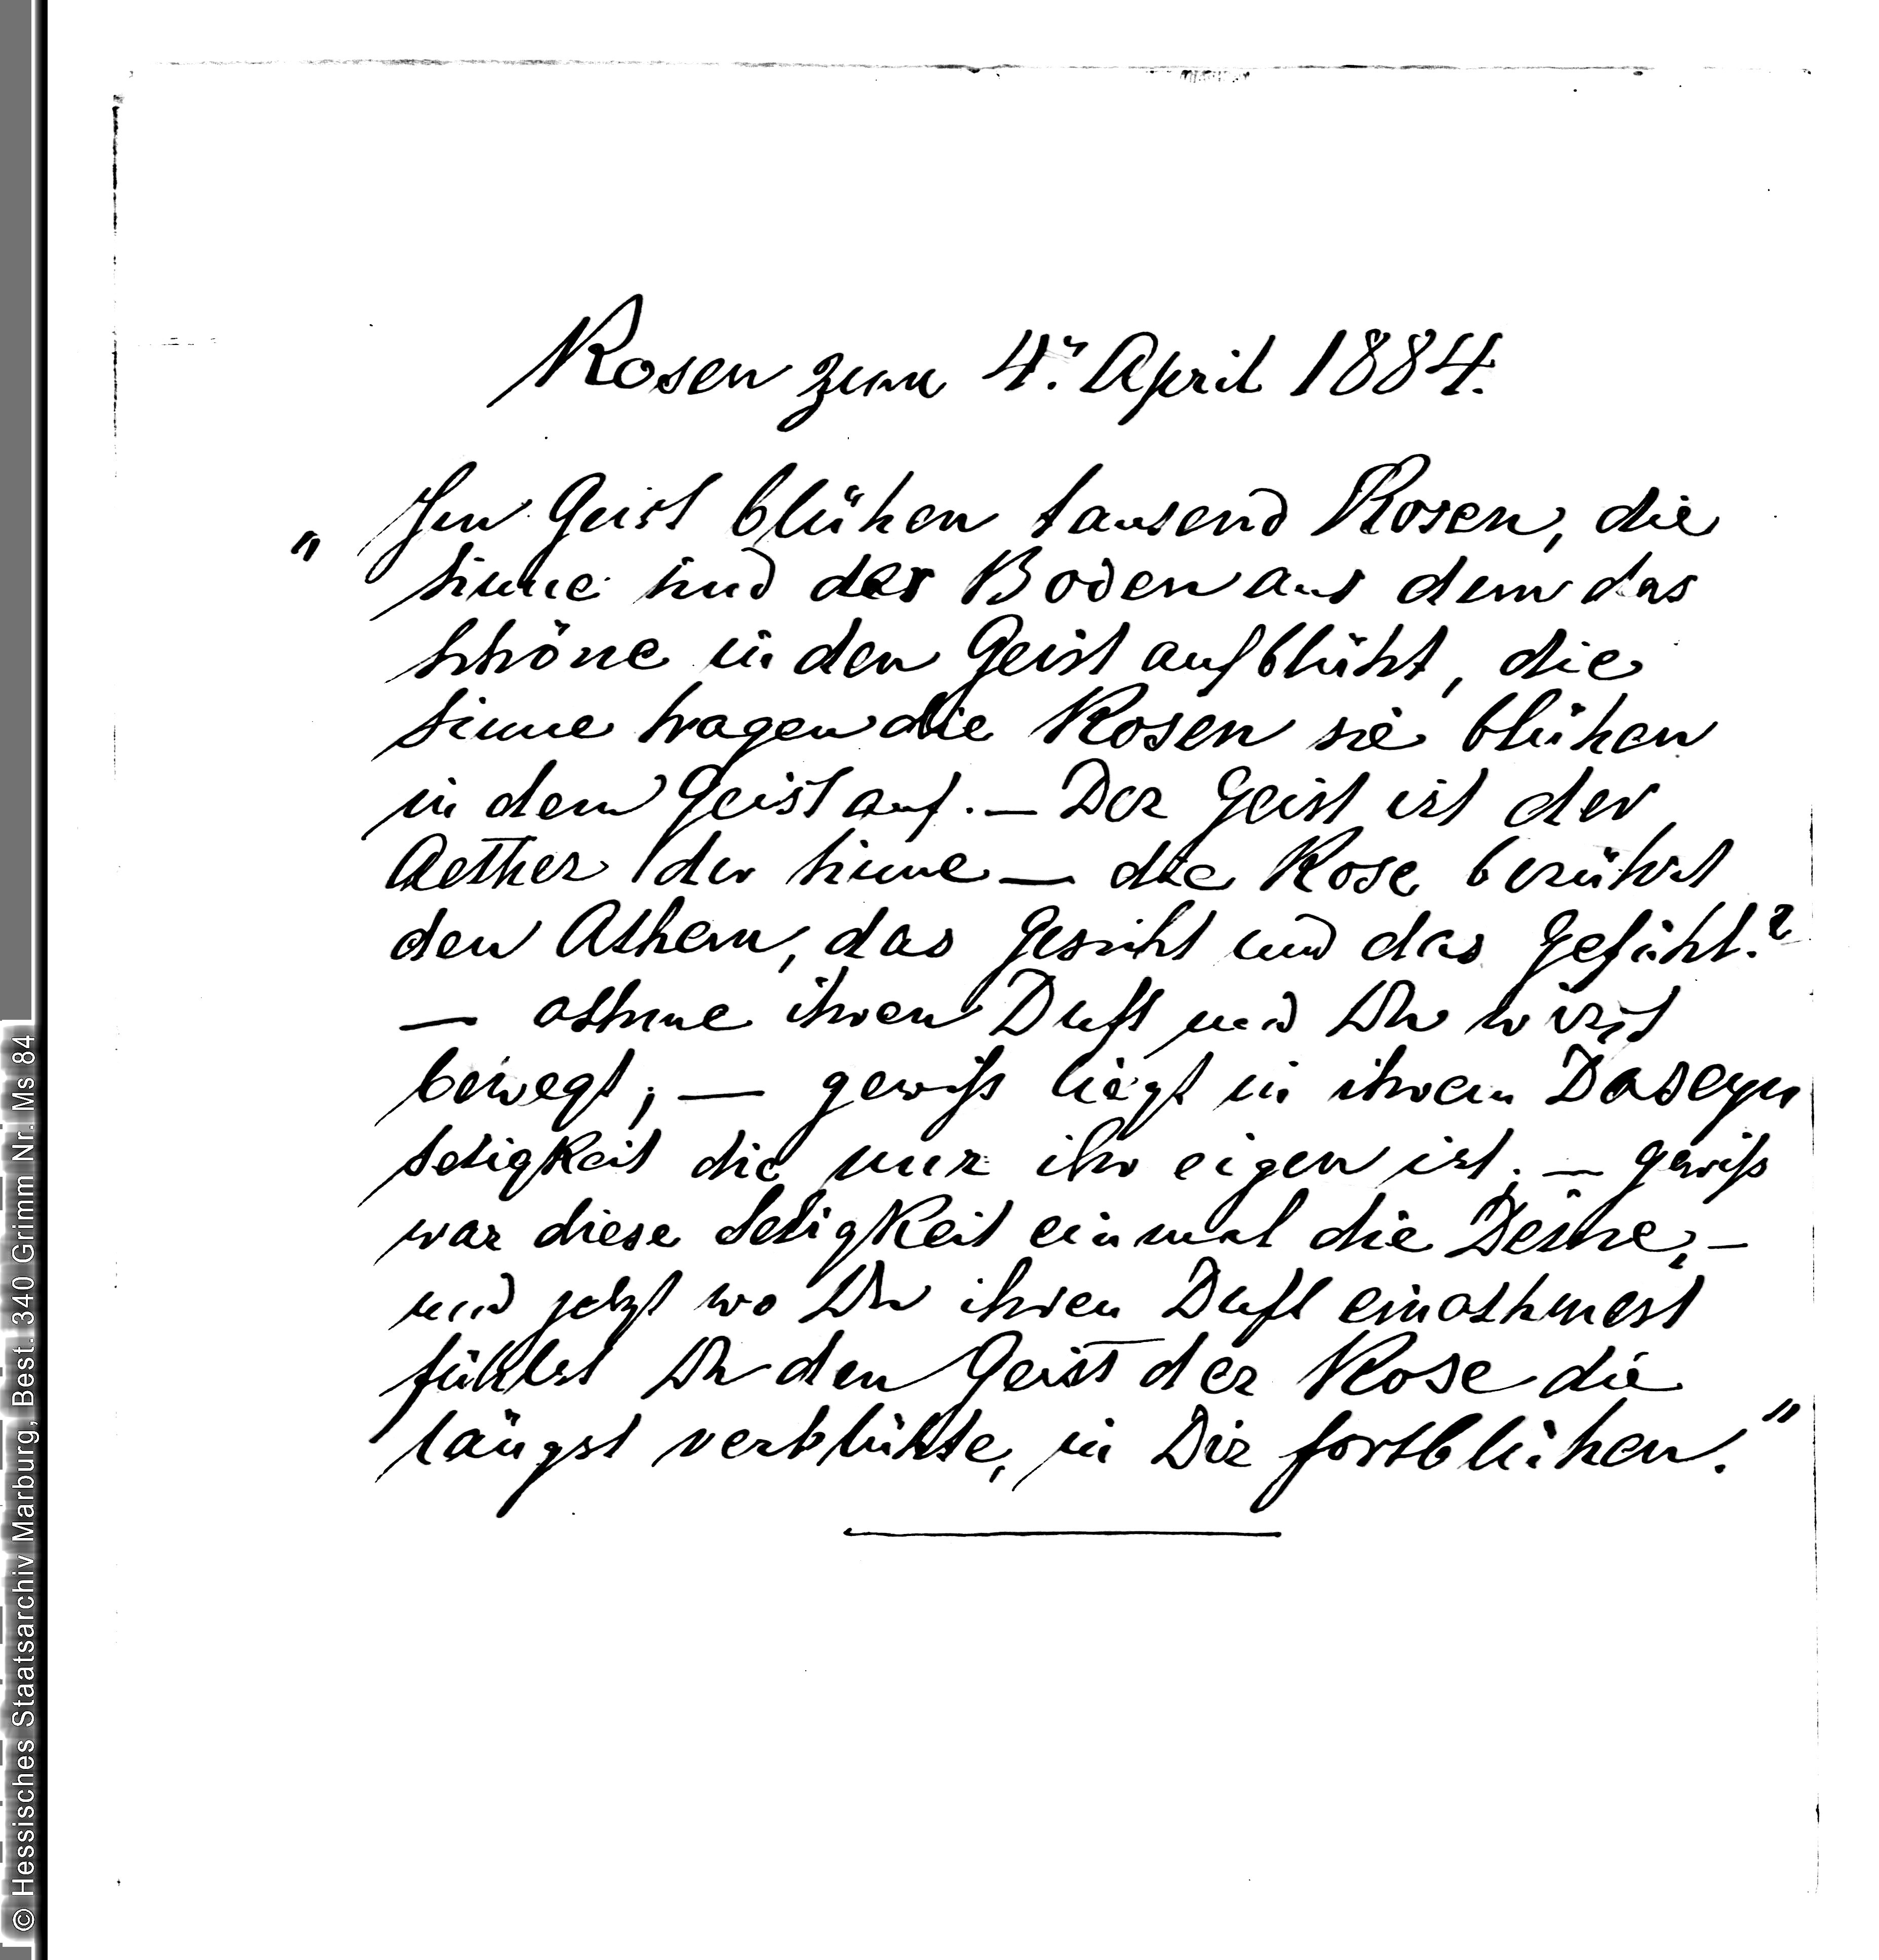 Rosen zum 4. April 1884.
„Im Geist blühen tausend Rosen, die
Sinne sind der Boden aus dem das
Schöne in den Geist aufblüht, die
Sinne tragen die Rosen sie blühen
in dem Geist auf. — Der Geist ist der
Aether der Sinne — die Rose berührt
den Athem, das Gesicht und das Gefühl.?
— athme ihren Duft und Du wirst
bewegt; — gewiß liegt in ihrem Daseyn
Seligkeit die nur ihr eigen ist; — gewiß
war diese Seligkeit einmal die Deine, —
und jetzt wo Du ihren Duft einathmest
fühlest Du den Geist der Rose die
längst verblühte, in Dir fortblühen."
© Hessisches Staatsarchiv Marburg, Best. 340 Grimm Nr. Ms 84